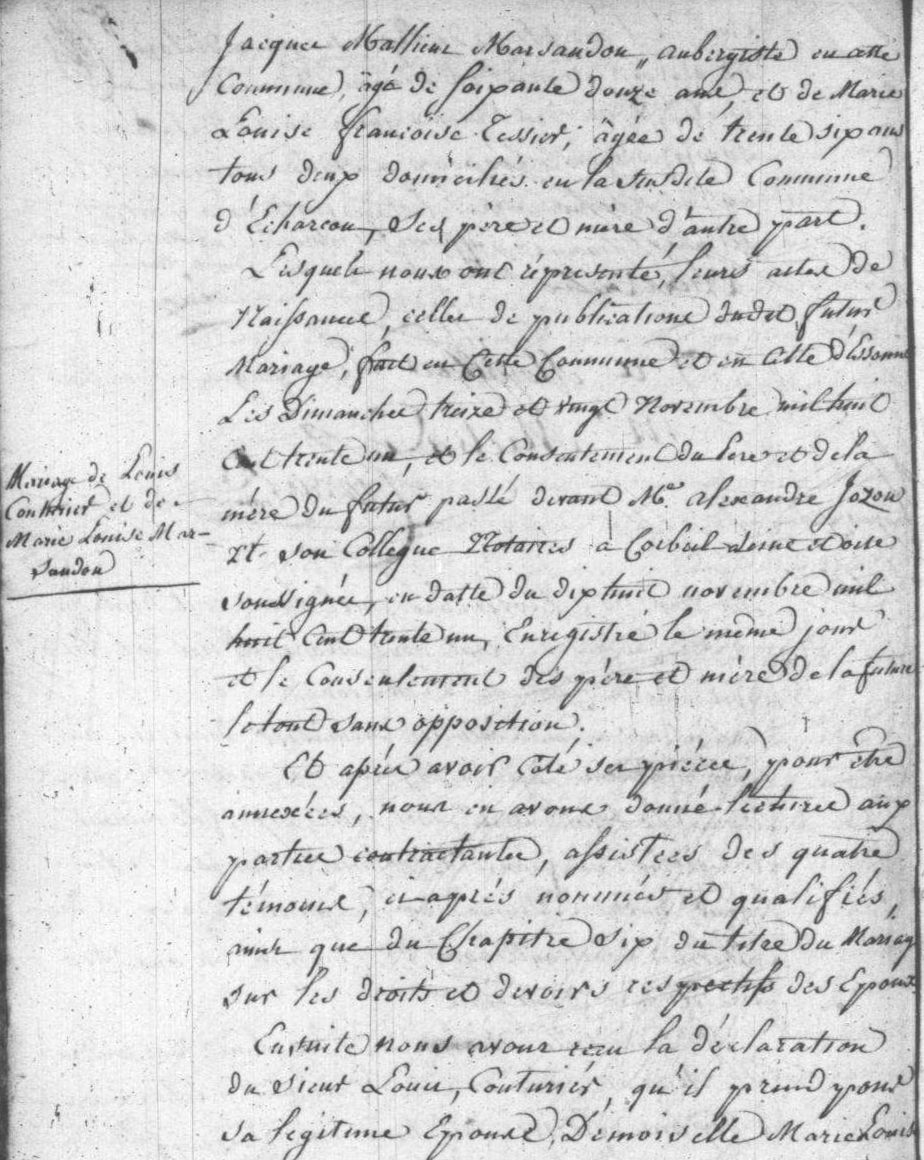 Jacques Mathieu Marsaudon, aubergiste en cette
Commune, âgé de soixante douze ans, et de Marie
Louise francoise Tessier, âgée de trente six ans
tous deux domiciliés en la susdite Commune
d'Echarcon, ses père et mère d'autre part.
Lesquels nous ont réprésenté, leurs actes de
Naissance, celles de publications dudit futur
Mariage, fait en Cette Commune et en Celle d'Essonne
Les Dimanches treize et vingt Novembre mil huit
Cent trente un, et le Consentement du Pere et de la
mère du futur passé devant Me. alexandre Jozon
Et son Collegue Notaires a Corbeil seine et oise
soussignés, en datte du dix huit novembre mil
huit Cent trente un, Enregistré le même jour
et le Consentement des père et mère de la future
le tout sans opposition.
Et après avoir Coté ses pièces, pour être
annexées, nous en avons donné lecture aux
parties contractantes, assistées des quatre
témoins, ci après nommés et qualifiés,
ainsi que du Chapitre six du titre du Mariage
sur les droits et devoirs respectifs des Epoux
Ensuite nous avons recu la déclaration
du sieur Louis, Couturier, qu'il prend pour
sa legitime Epouse, Démoiselle Marie Louise
Mariage de Louis
Couturier et de
Marie Louise Mar-
saudon